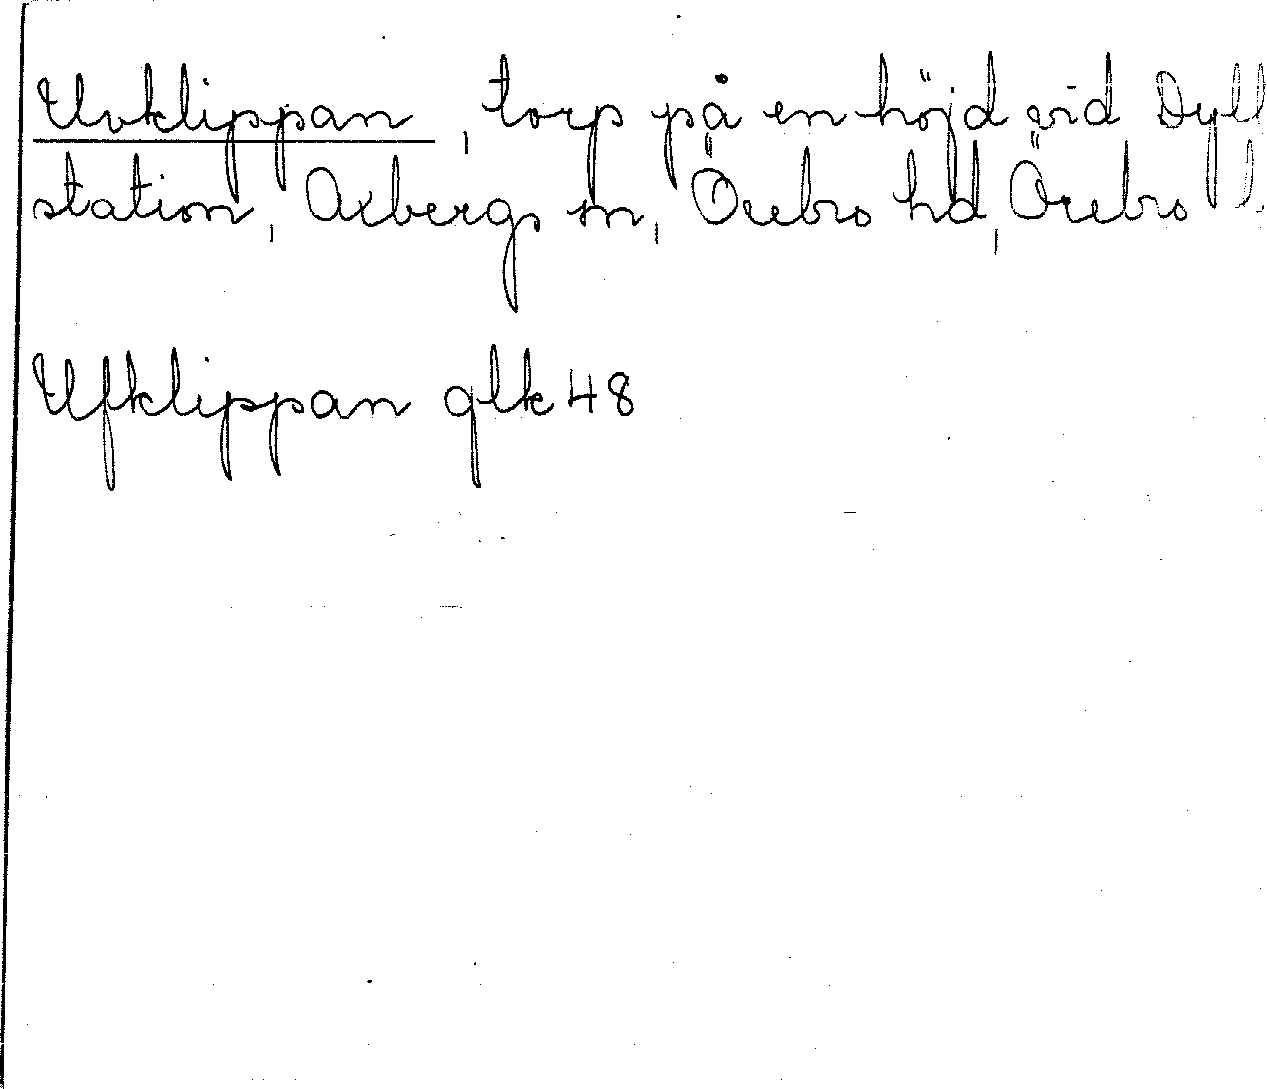 Uvklippan, torp på en höjd vid Dyll
station, Axbergs sn, Örebro hd, Örebro l.
Ufklippan glk 48